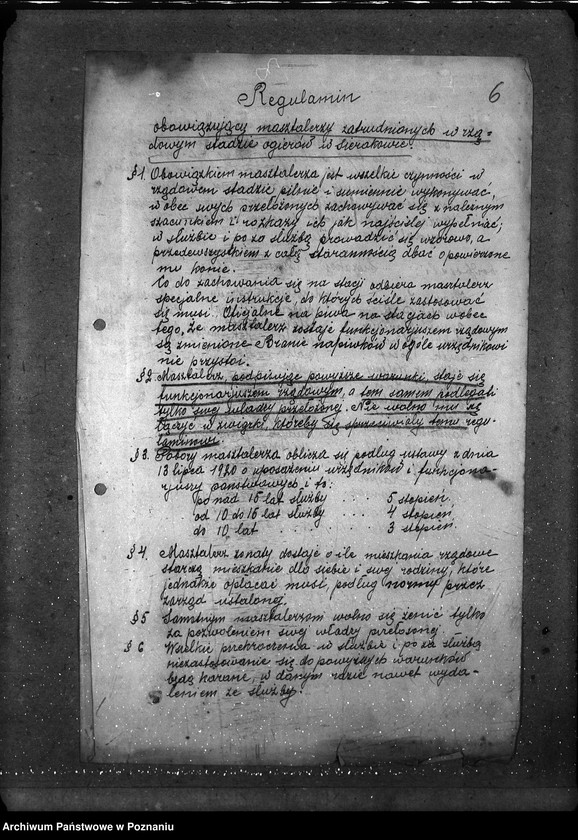 6
Regulamin
obowiązujący masztalerzy zatrudnionych w rzą=
dowym stadzie ogierów w Sierakowie.
§ 1. Obowiązkiem masztalerza jest wszelkie czynności w
rządowem stadzie pilnie i sumiennie wykonywać,
wobec swych przełożonych zachowywać się z należnym
szacunkiem i rozkazy ich jak najściślej wypełniać;
w służbie i poza służbą prowadzić się wzorowo, a
przedewszystkiem z całą starannością dbać o powierzone
mu konie.
Co do zachowania się na stacji odbiera masztalerz
specjalne instrukcje, do których ściśle zastosować
się musi. na piwa na stacjach wobec
tego, że masztalerz zostaje funkcjonarjuszem rządowym
są zniesione. Branie napiwków wogóle urzędnikowi
nie przystoi.
§ 2. Masztalerz, podpisując powyższe warunki, staje się
funkcjonarjuszem rządowym, a tem samem podlegać
tylko swej władzy przełożonej. Nie wolno mu się
łączyć w związki, któreby się sprzeciwiały temu regu-
laminowi.
§ 3. Pobory masztalerza oblicza się podług ustawy z dnia
13 lipca 1920 o uposażeniu urzędników i funkcjona-
rjuszy państwowych i to:
ponad 15 lat służby . . . 5 stopień.
od 10 do 15 lat służby . . . 4 stopień.
do 10 lat . . . . . 3 stopień.
§ 4. Masztalerz żonaty dostaje o ile mieszkania rządowe
starczą mieszkanie dla siebie i swej rodziny, które
jednakże opłacać musi, podług normy przez
zarząd ustalonej.
§ 5 masztalerzom wolno się żenić tylko
za pozwoleniem swej władzy przełożonej.
§ 6 Wszelkie przekroczenia w służbie i poza służbą
niezastosowanie się do powyższych warunków
będą karane, w danym razie nawet wyda-
leniem ze służby.
Archiwum Państwowe w Poznaniu
Archiwum Państwowe w Poznaniu